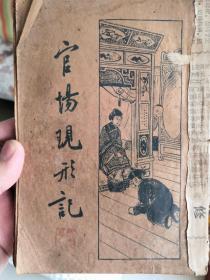 官場現形記